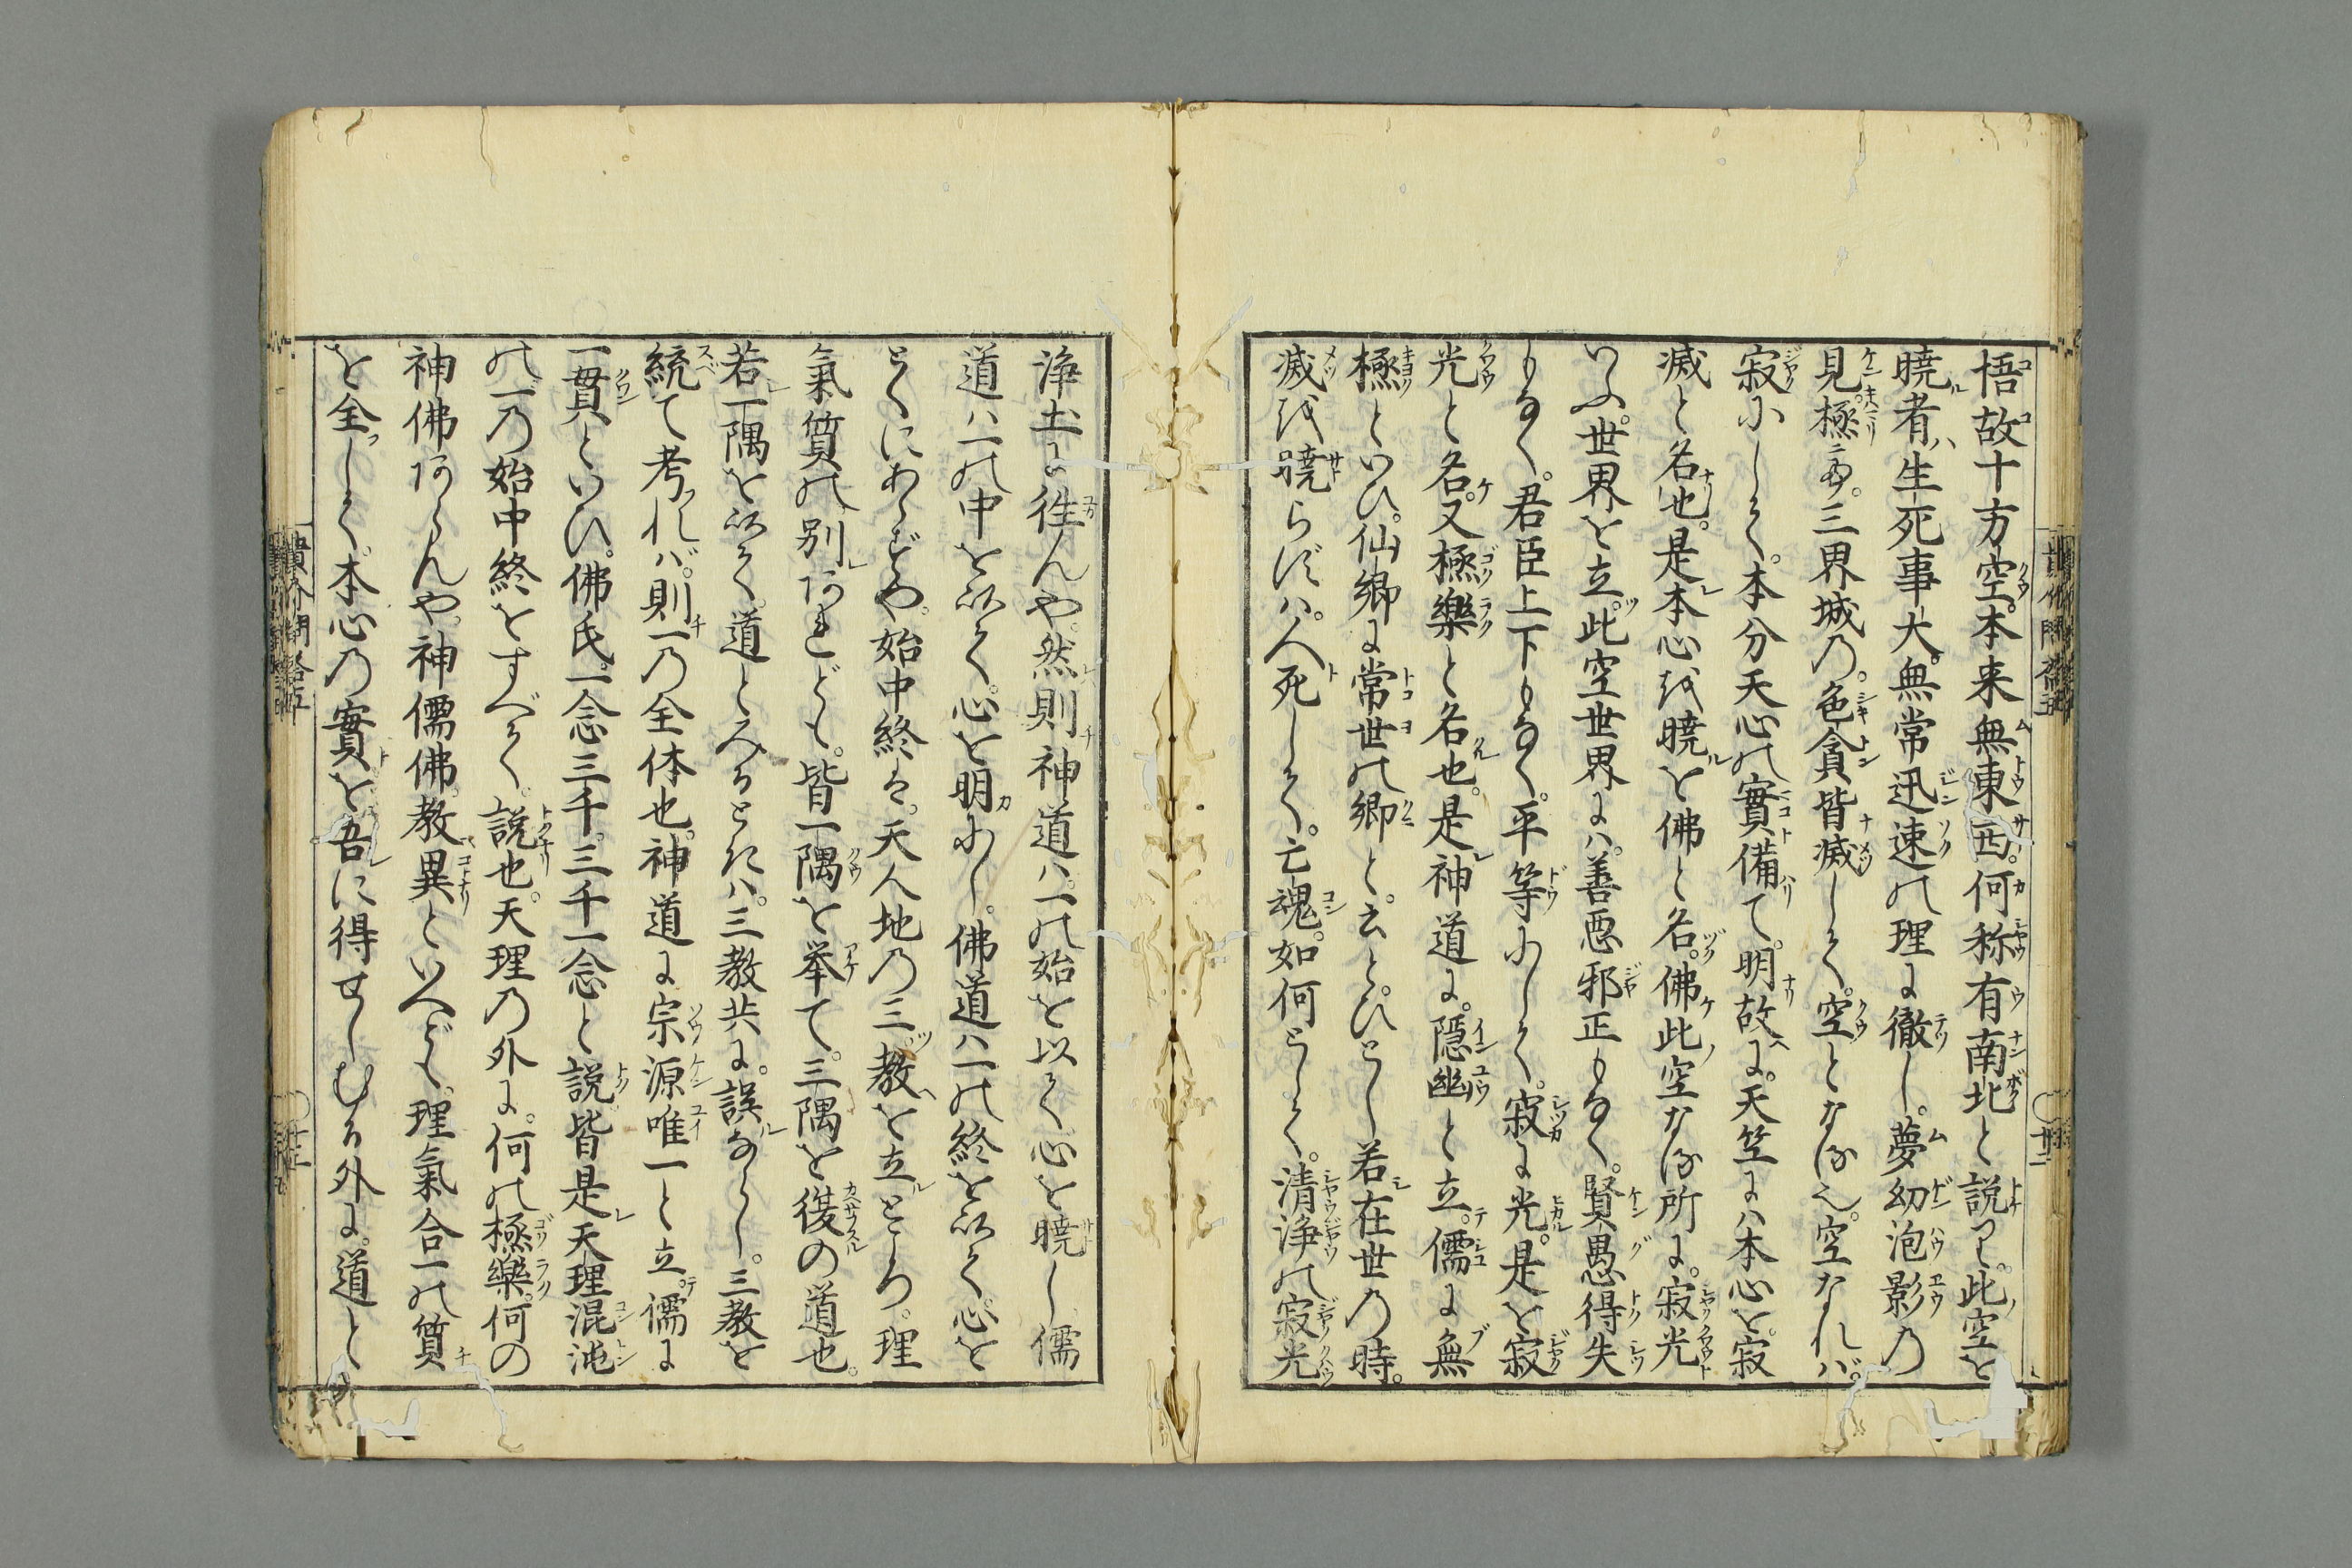 悟故十方空。本来無東西。何称有南北と説つて。此空を
暁者ハ。生死事大。無常迅速の理に徹し。夢幻泡影の
見極て。三界城の。色貪皆滅して。空となる也。空なれバ。
寂にして。本分天心の實備て。明故に。天笠にハ本心を。寂
滅と名也。是本心を暁を佛と名。佛此空なる所に。寂光
いふ。世界を立。此空世界にハ。善悪邪正もなく。賢愚得失
もなく。君臣上下もなく。平等にして。寂に光。是を寂
光と名。又極樂と名也。是神道に。隠幽と立。儒に無
極といひ。仙郷に常世の郷と。云とぴとし。若在世の時。
滅を暁らずバ。人死して。亡魂。如何として。清浄の寂光
浄土に往んや。然則神道ハ。一の始を以て心を暁し。儒
道ハ一の中を以て。心を明にし。佛道ハ一の終を以て。心を
とくにあらずや。始中終は。天人地の三。教を立ところ。理
氣質の別あれども。皆一隅を挙て。三隅を復の道也。
若一隅を以て。道とみるときハ。三教共に。誤なるべし。三教を
統て考れバ。則一の全体也。神道に宗源唯一と立。儒に
一貫といひ。佛氏。一念三千。三千一念と説。皆是天理混沌
の一の始中終をすべて。説也。天理の外に。何の極樂。何の
神佛あらんや。神儒佛。教異といへども。理氣合一の質
を全して。本心の實を吾に得せしむる外に。道と